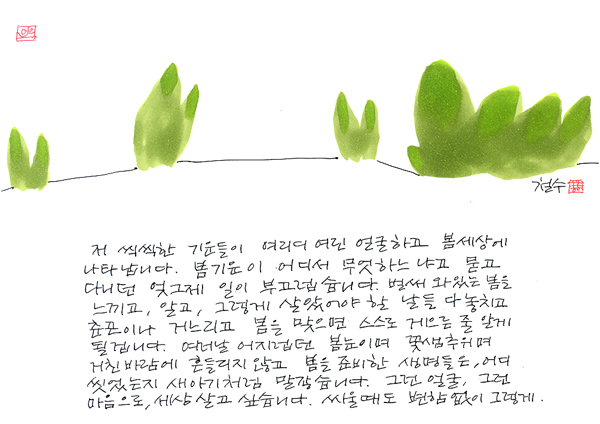 저 씩씩한 기운들이 여리디 여린 얼굴하고 봄세상에
나타납니다. 봄기운이 어디서 무엇하느냐고 묻고
다니던 엊그제 일이 부끄럽습니다. 벌써 와있는 봄을
느끼고, 알고, 그렇게 살았어야 할 날들 다 놓치고
춘곤이나 거느리고 봄을 맞으면 스스로 게으른 줄 알게
될겁니다. 여러날 어지럽던 봄눈이며 꽃샘추위며
거친바람에 흔들리지 않고 봄을 준비한 생명들은, 어디
씻었는지 새아기처럼 말갛습니다. 그런 얼굴, 그런
마음으로, 세상 살고 싶습니다. 싸울때도 변함없이 그렇게.
철수